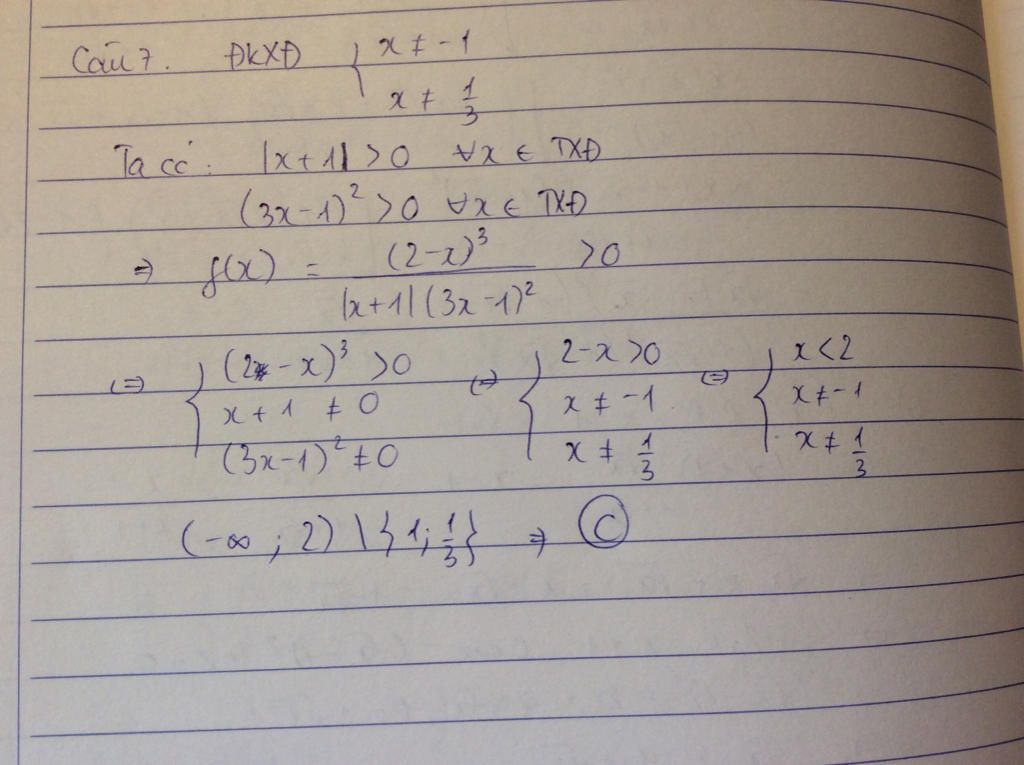 Câu 7. ĐKXĐ { x ≠ -1
x ≠ 1/3
Ta có: |x+1| > 0 ∀x ∈ TXĐ
(3x-1)² > 0 ∀x ∈ TXĐ
⇒ f(x) = (2-x)³ / |x+1|(3x-1)² > 0
⇔ { (2-x)³ > 0 ⇔ { 2-x > 0 ⇔ { x < 2
x+1 ≠ 0 x ≠ -1 x ≠ -1
(3x-1)² ≠ 0 x ≠ 1/3 x ≠ 1/3
(-∞; 2) \ {1; 1/3} ⇒ C